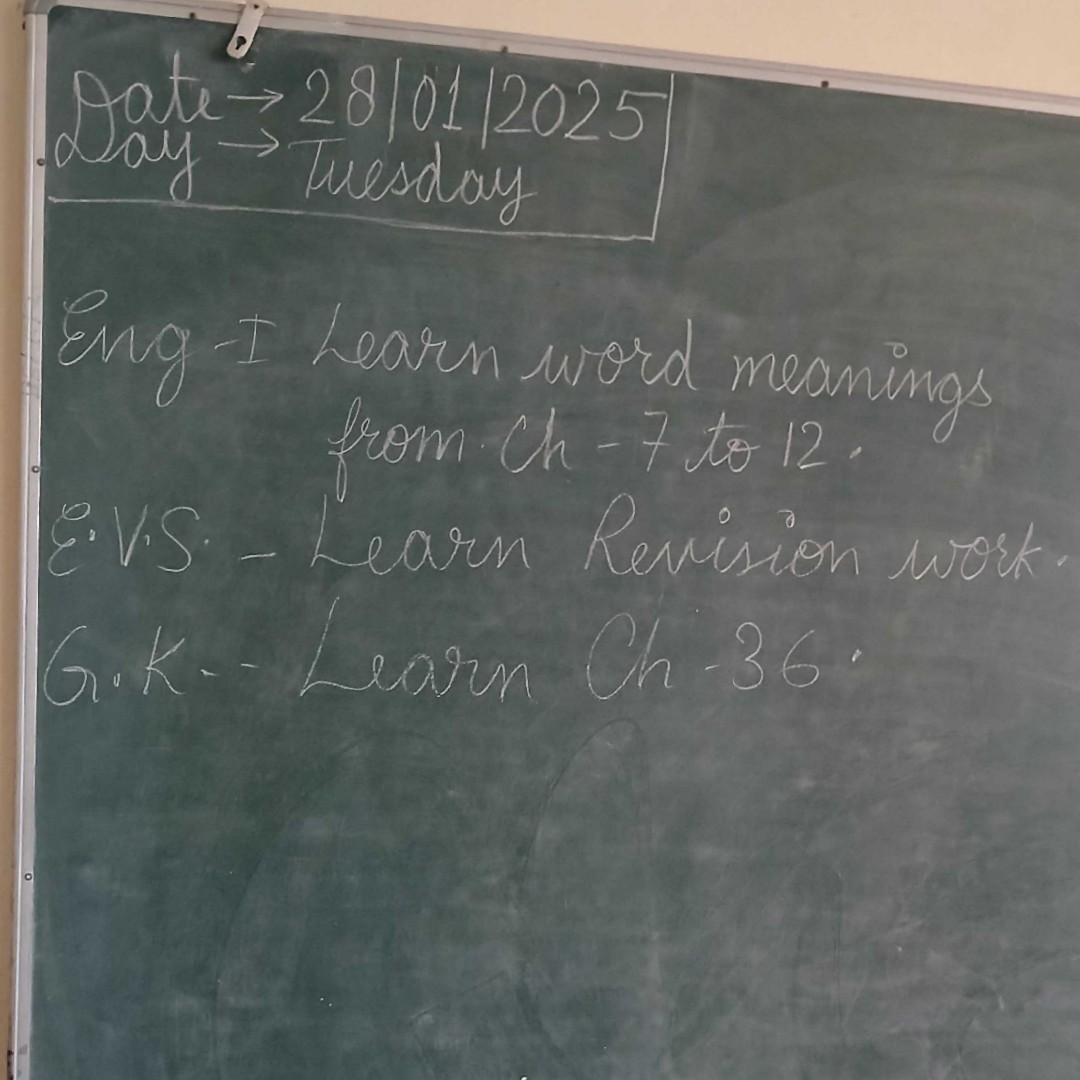 Date → 28/01/2025
Day → Tuesday
Eng - I Learn word meanings
from Ch - 7 to 12.
E.V.S. - Learn Revision work.
G.K. - Learn Ch - 36.